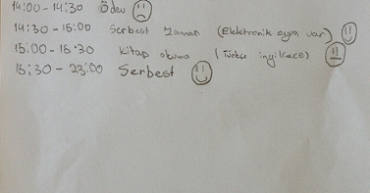 14:00-14:30 Ödev
14:30-15:00 Serbest Zaman (Elektronik eşya var)
15:00-15:30 Kitap okuma (Türkçe ingilizce)
15:30-23:00 Serbest